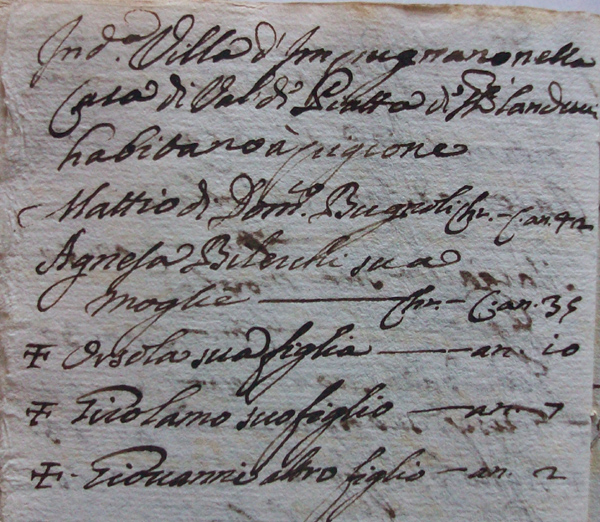 Ind.ª Villa d'Impugnano nella
Casa di Val di Piatta di Blanducci
habitano à pigione
Mattio di Dom.co Bugnoli Chr. - C. an. 42
Agnesa Bilerchi sua
moglie — Chr. - C. an. 35
✠ Orsola sua figlia — an. 10
✠ Girolamo suo figlio — an. 7
✠ Giovanni altro figlio — an. 2